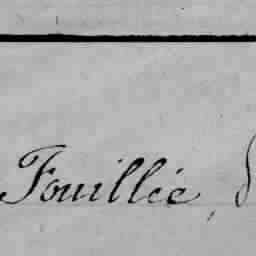 Fouillée,